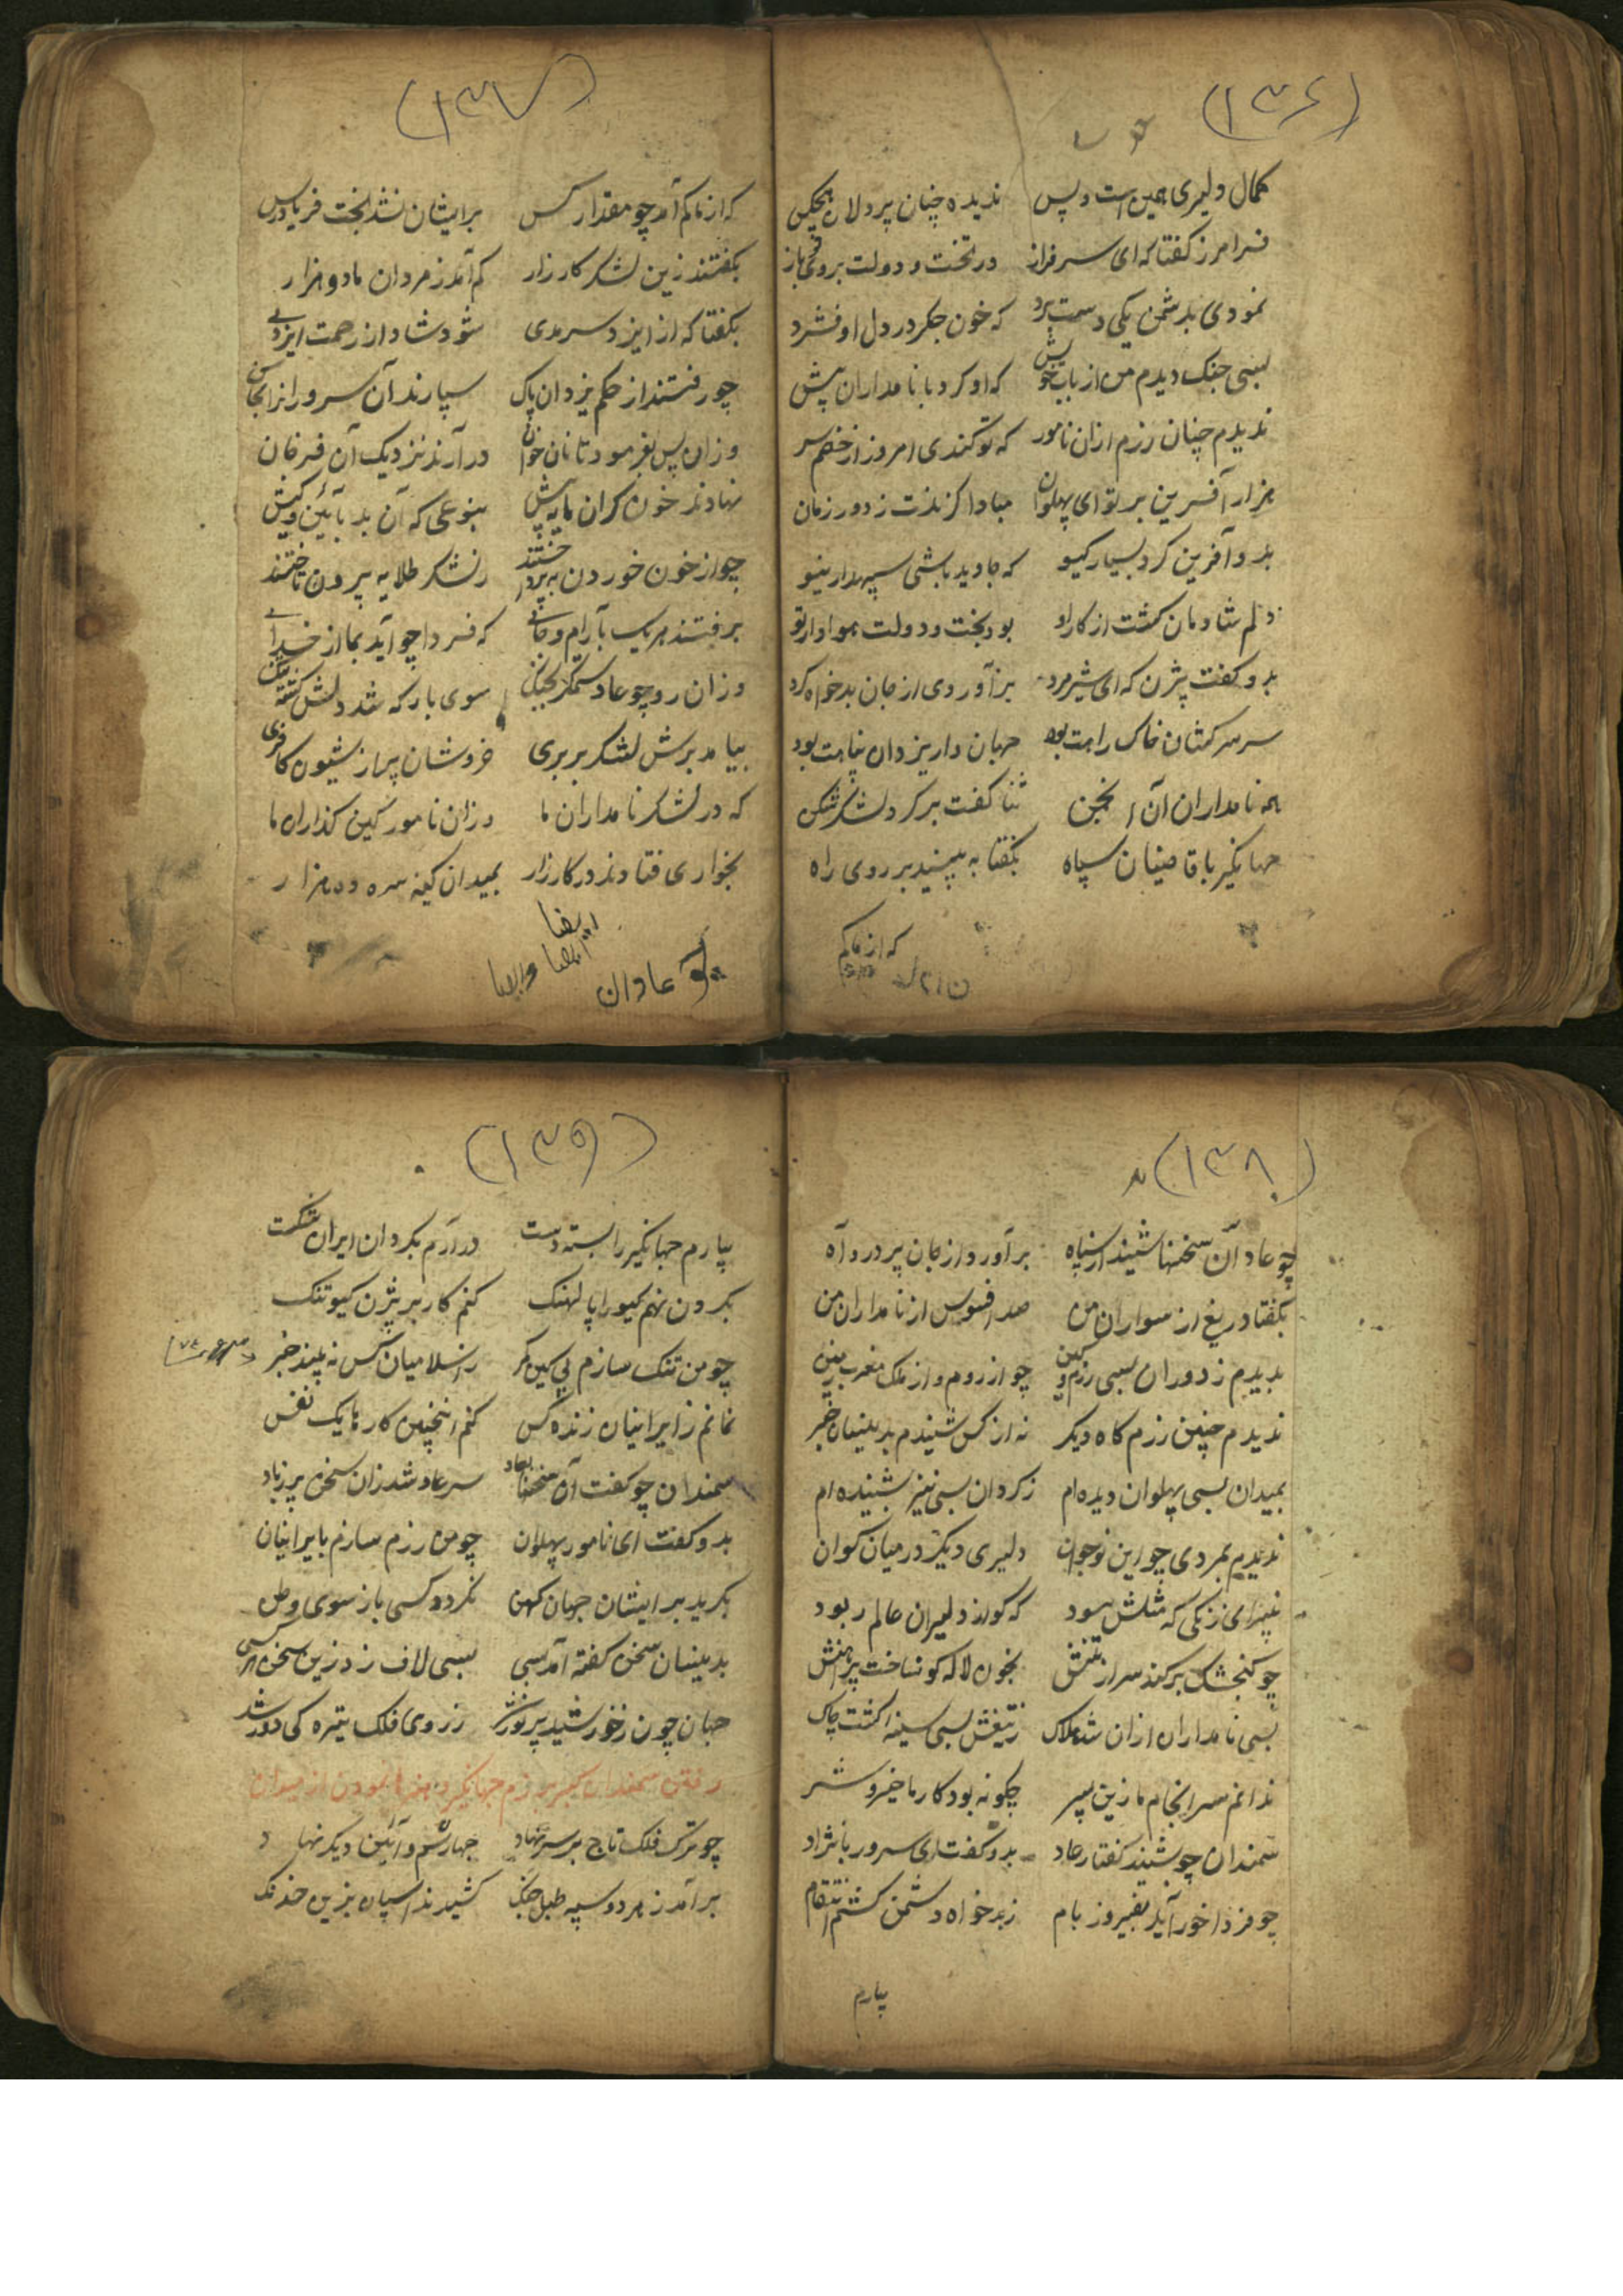 (۱۳۶)
کمال دلیری همین است و بس ندیده چنان پردلان هیچکس
فرامرز گفتا که ای سرفراز در تخت و دولت بروی تو باز
نمودی بدشمن یکی دست برد که خون جکر در دل او فشرد
بسی جنک دیدم من از باب خویش که او کرد با نامداران پیش
ندیدم چنان رزم ازان نامور که تو کندی امروز از خصم سر
هزار آفرین بر تو ای پهلوان مبادا کزندت ز دور زمان
بدو آفرین کرد بسیار کیو که جاوید باشی سپهدار نیو
دلم شادمان کشت از کار تو بود بخت و دولت هوادار تو
بدو کفت بیژن که ای شیرمرد برآوردی از جان بدخواه کرد
سر سرکشان خاک راهت بود جهان دار یزدان پناهت بود
همه نامداران آن انجمن ثنا کفت بر کرد لشکرشکن
جهانکیر با قاصینان سپاه بکفتا به بینید بر روی راه
که از ماکم
(۱۳۷)
که از ماکم آمد چو مقدار کس برایشان نشد بخت فریادرس
بکفتند زین لشکر کارزار کم آمد ز مردان ما دو هزار
بکفتا که از ایزد سرمدی شود شاد از رحمت ایزدی
چو رفتند از حکم یزدان پاک سپارند آن سروران را بخاک
وزان پس بفرمود تا نان خوان درآرند نزدیک آن فرخان
نهادند خون کران مایه پیش بنوعی که آن بد بآئین و کیش
چو از خون خوردن به پرداختند ز لشکر طلایه بیرون تاختند
برفتند هریک بآرام و جای که فردا چو آید بما از خدای
وزان رو چو عاد ستمکر بجنک سوی بارکه شد دلش کشته تنک
بیامد برش لشکر بربری خروشان پر از شیون کافری
که در لشکر نامداران ما وزان نامور کین کذاران ما
بخواری فتادند در کارزار بمیدان کینه سره ده هزار
ایضا
ایضا وایضا
عادان
(۱۳۸)
چو عاد آن سخنها شنید از سپاه برآورد از جان پر درد آه
بکفتا دریغ از سواران من صد افسوس از نامداران من
بدیدم ز دوران بسی رزم و کین چو از روم و از ملک مغرب زمین
ندیدم چنین رزمکاه دیکر نه از کس شنیدم بدینسان خبر
بمیدان بسی پهلوان دیده ام ز کردان بسی نیز بشنیده ام
ندیدیم بمردی چو این نوجوان دلیری دیکر در میان کوان
تبیرای زنکی که مثلش نبود که کو از دلیران عالم ربود
چو کنجشک برکند سر از تنش بخون لاله کون ساخت پیراهنش
بسی نامداران ازان شد هلاک ز تیغش بسی سینه ها کشت چاک
ندانم سرانجام ما زین پسر چکونه بود کار ما خیر و شر
سمندان چو بشنید کفتار عاد بدو کفت ای سرور بانژاد
چو فردا خور آید بفیروز بام ز بدخواه دشمن کشم انتقام
بیارم
(۱۳۹)
بیارم جهانکیر را بسته دست درآرم بکردان ایران شکست
بکردن نهم کیو را پالهنک کنم کار بر بیژن کیو تنک
چو من تنک سازم پی کین کمر ز اسلامیان کس نه بیند خبر
نمانم ز ایرانیان زنده کس کنم اینچنین کار با یک نفس
سمندان چو کفت آن سخنها بعاد سر عاد شد زان سخن پر ز باد
بدو کفت ای نامور پهلوان چو من رزم سازم با ایرانیان
بکرید بر ایشان جهان کهن نکردد کسی باز سوی وطن
بدینسان سخن کفته آمد بسی بسی لاف زد زین سخن هر کسی
جهان چون ز خورشید پرنور شد ز روی فلک تیره کی دور شد
رفتن سمندان کبیر برزم جهانکیر و هنرها نمودن از میدان
چو ترک فلک تاج بر سر نهاد جهان رسم و آئین دیکر نهاد
برآمد ز هر دو سپه طبل جنک کشیدند اسپان بزین خدنک